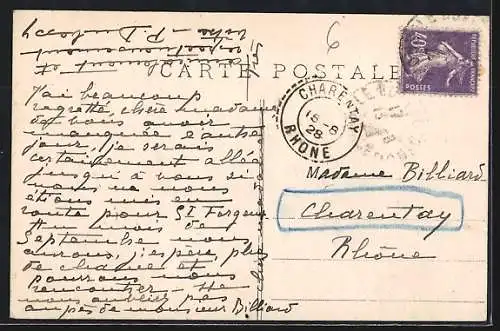 6
CARTE POSTALE
J'ai beaucoup
regretté chère madame
de vous avoir
manquée l'autre
jour, je serais
certainement allée
jusqu'à vous si
nous ne nous
étions mis en
route pour St Forgeux
Au mois de
Septembre nous
aurons, j'espère, plus
de chance et
pourrons nous
rencontrer - Ne
nous oubliez pas
auprès de monsieur Billiard
CHARENTAY
RHONE
28
40c
POSTES
Madame Billiard
Charentay
Rhône